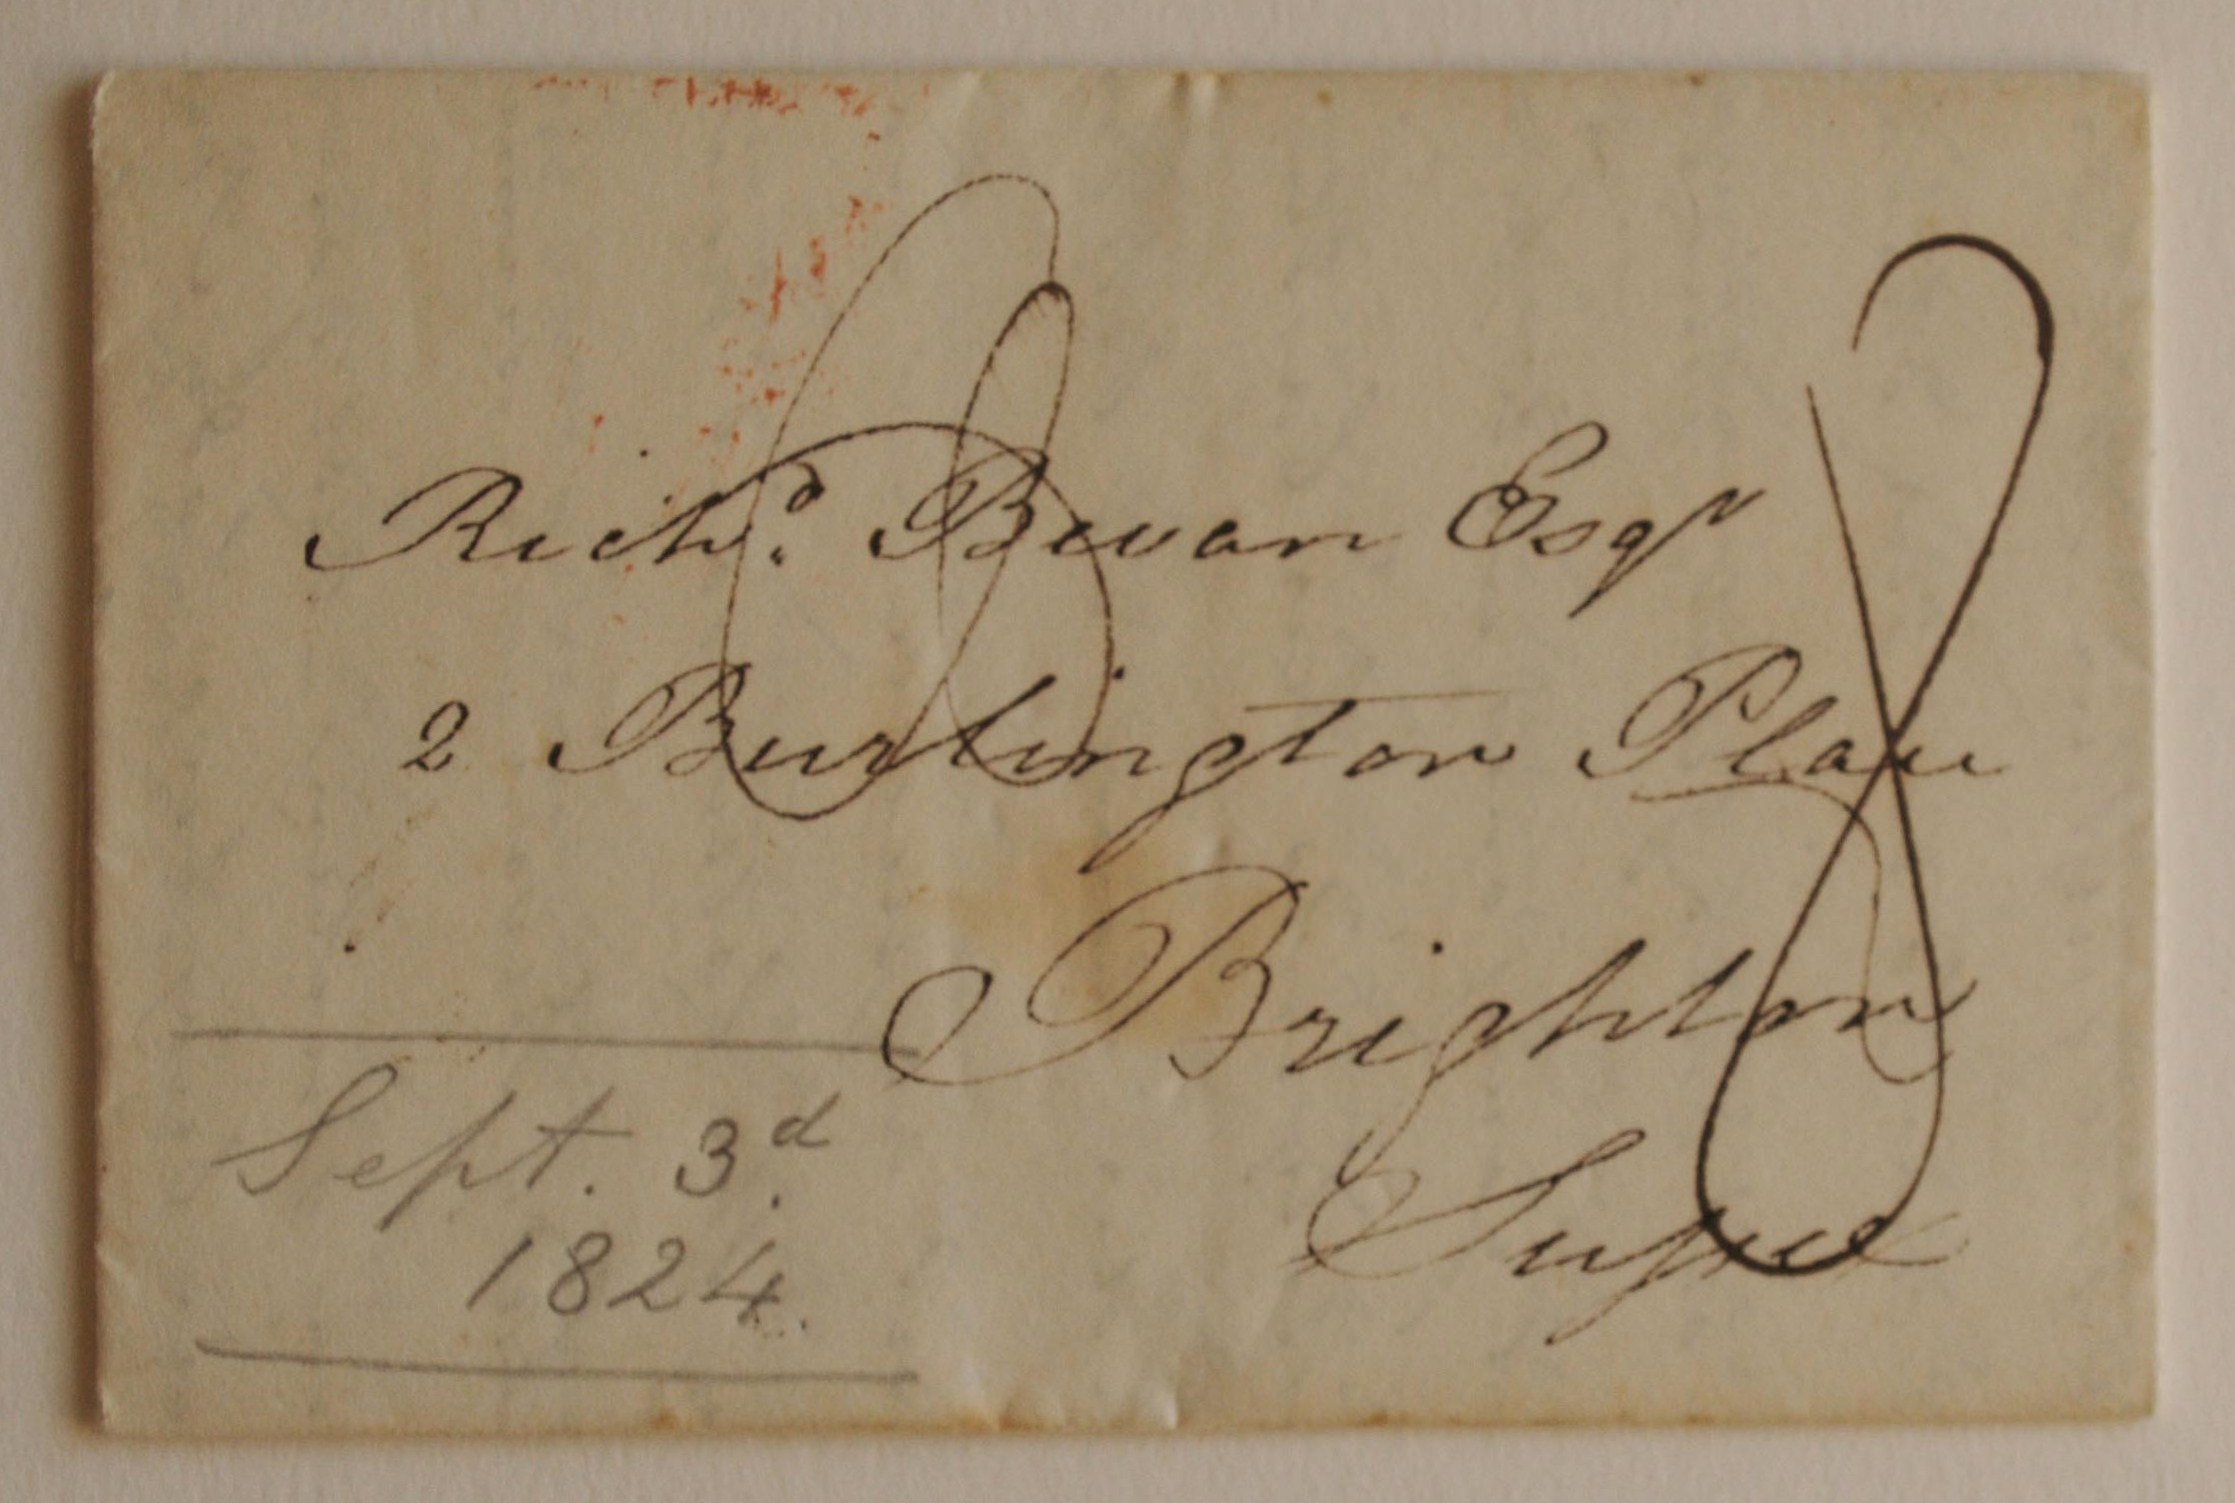 Richd. Bevan Esqr
2 Burlington Place
Brighton
Sussex
8
Sept. 3d.
1824.